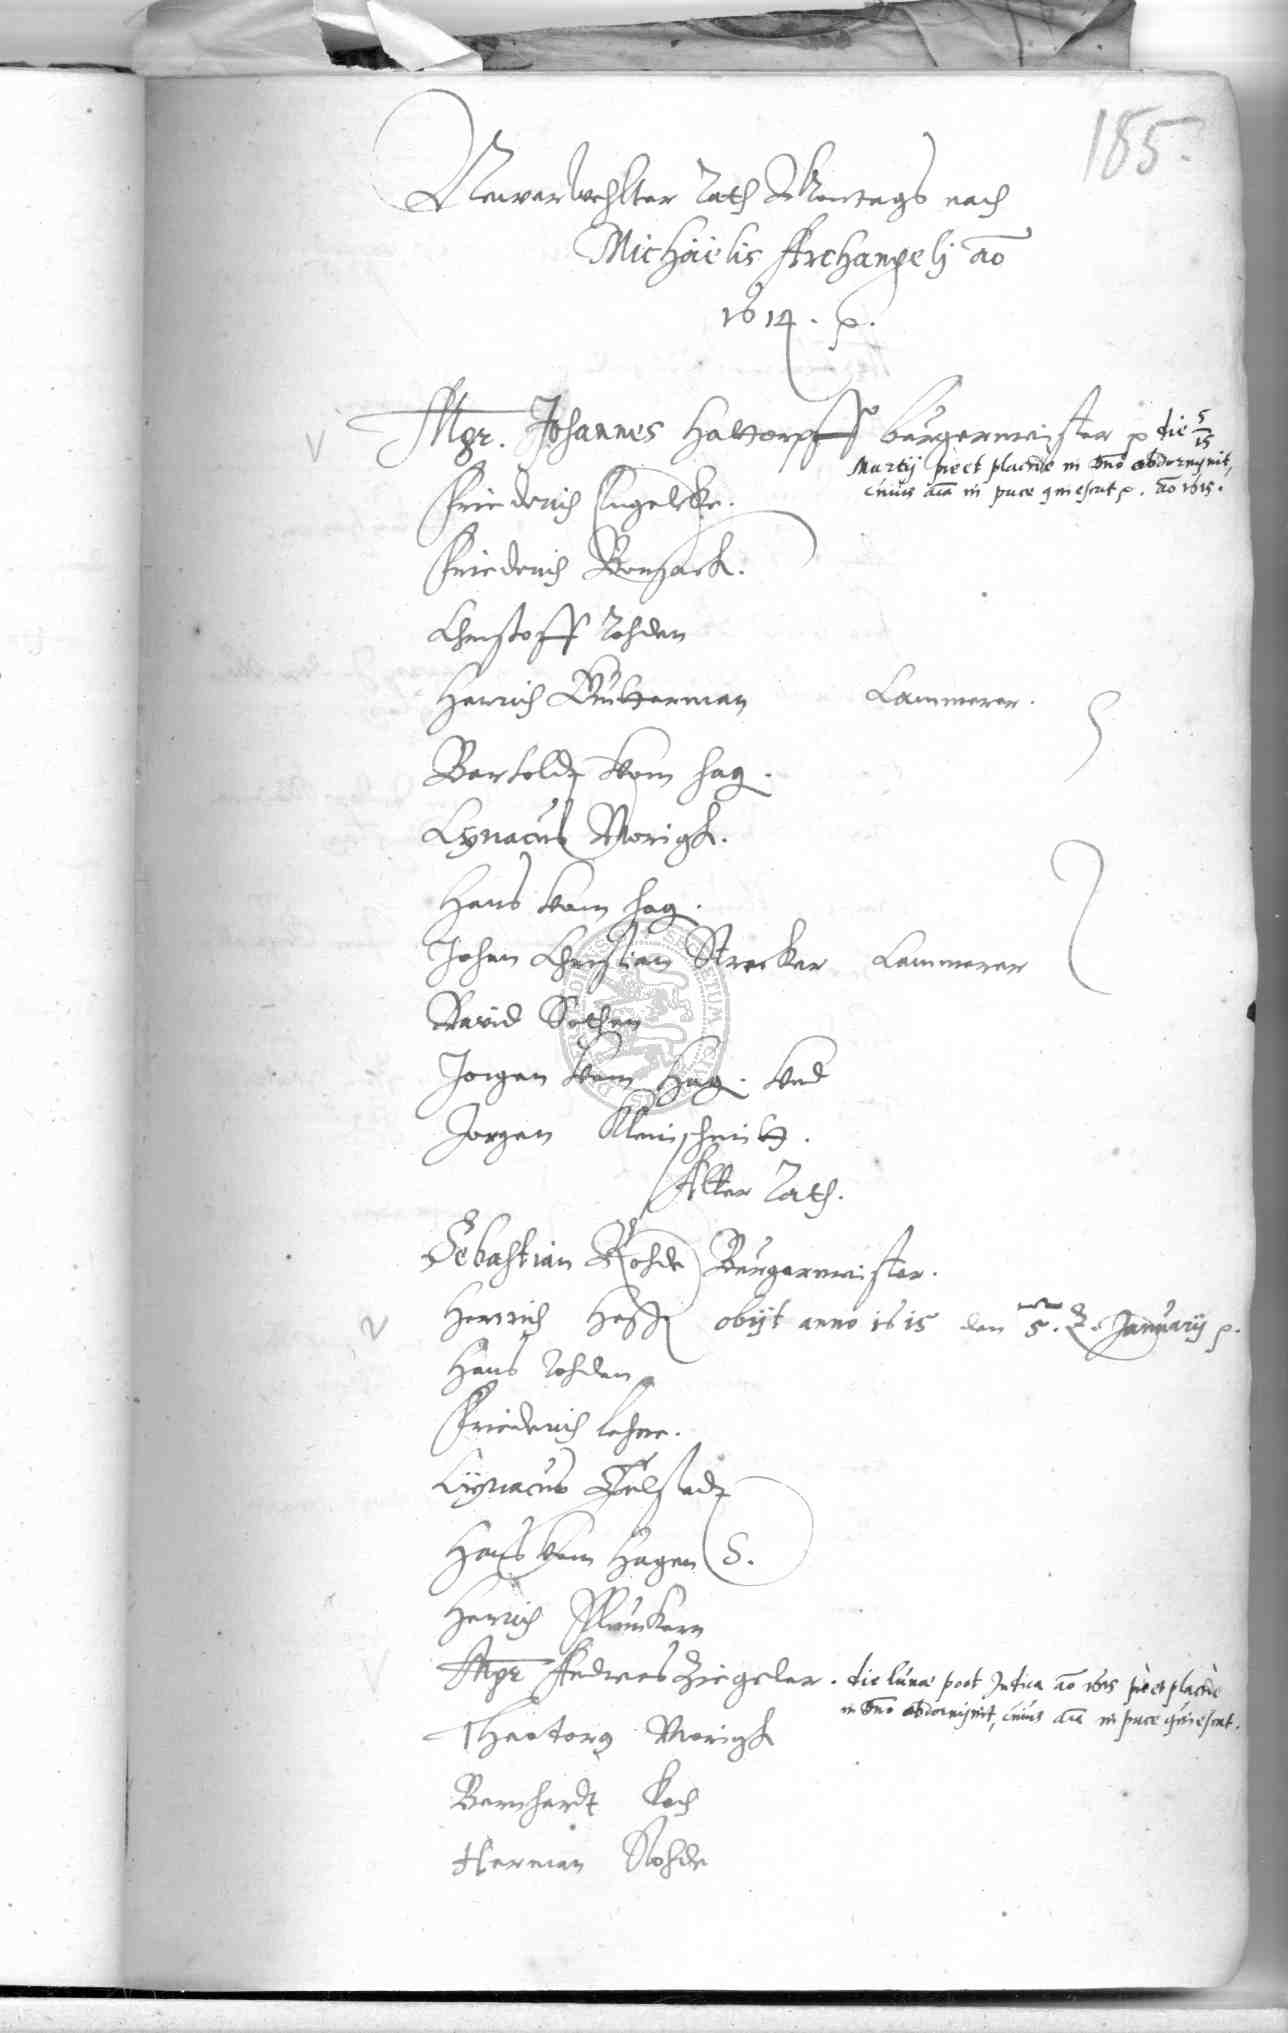 185.
Newerwehlter Rath Montags nach
Michäelis Archangelj ao
1614. p.
Mgr. Johannes Hattorpff burgermeister p die 5/15
Martij pie et placide in Dno obdormijvit,
cuius aia in pace quiescat p. ao 1615.
Friederich Engelcke.
Friederich Bonsack.
Christoff Rohden
Henrich Gutterman Cammerer.
Bertoldt vom Hag.
Cÿriacus Morigk.
Hans vom Hag.
Johan Christian Strecker Cammerer
David Sothen
Jorgen vom Hag. vnd
Jorgen Kleinschmitt.
Alter Rath.
Sebastian Rohde Burgermeister.
Henrich Hesse obijt anno 1615 den 5. Januarij p.
Hans Rohden
Friederich Lehne.
Cÿriacus
Hans vom Hagen S.
Henrich Pflunckern
Mgr Andreas Ziegeler. die lunae post Judica ao 1615 pie et placide
in Dno obdormijvit, cuius aia in pace quiescat.
Morigk
Bernhardt Koch
Herman Rohde